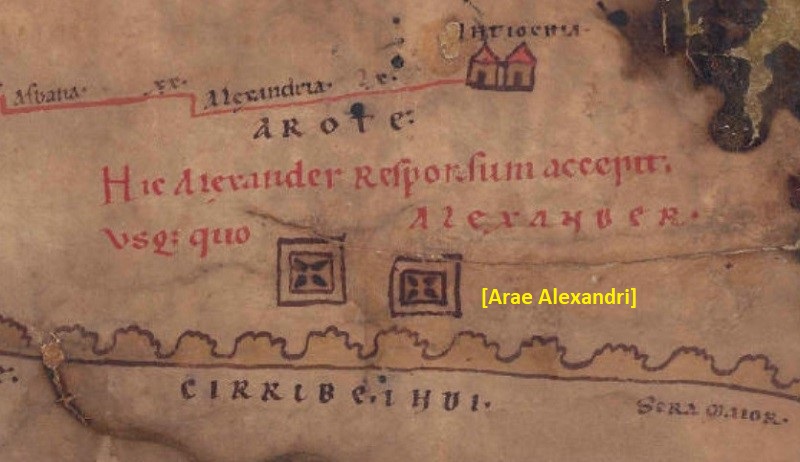 Antiochia·
Asbana· xx· Alexandria·
AROTE:
Hic Alexander Responsum accepit.
Usq: quo ALEXANDER·
[Arae Alexandri]
CIRRIBE·INDI·
SERA MAIOR·